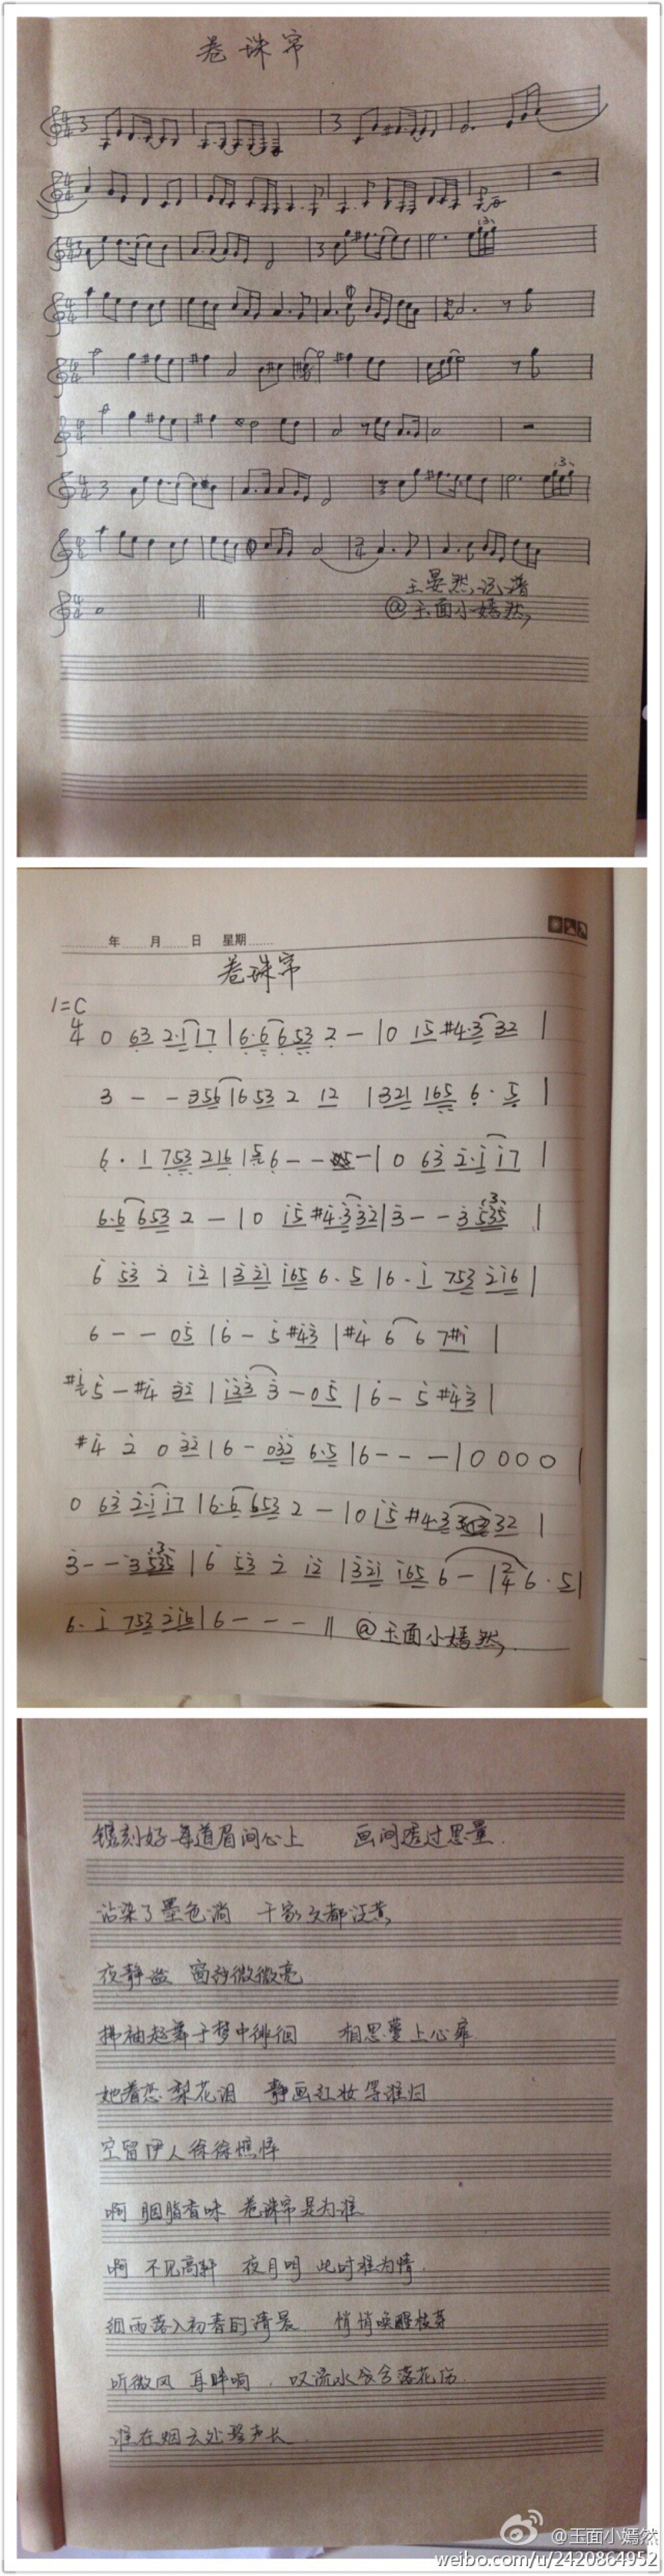 卷珠帘
王晏然记谱
@玉面小嫣然
年 月 日 星期
卷珠帘
1=C
4/4 0 63 2·1 17 | 6·6 653 2 — | 0 15 #4·3 32 |
3 — — 356 | 1653 2 12 | 321 165 6· 5 |
6· 1 753 216 | 6 — — — | 0 63 2·1 17 |
6·6 653 2 — | 0 15 #4·3 32 | 3 — — 3 535 |
6 53 2 12 | 321 165 6· 5 | 6· 1 753 216 |
6 — — 05 | 6 — 5 #43 | #4 6 6 7#1 |
5 — #4 32 | 123 3 — 05 | 6 — 5 #43 |
#4 2 0 32 | 6 — 032 6·5 | 6 — — — | 0 0 0 0 |
0 63 2·1 17 | 6·6 653 2 — | 0 15 #4·3 32 |
3 — — 3 535 | 6 53 2 12 | 321 165 6 — | 2/4 6· 5 |
6· 1 753 216 | 6 — — — || @玉面小嫣然
镌刻好每道眉间心上 画间透过思量
沾染了墨色淌 千家文都泛黄
夜静谧 窗纱微微亮
拂袖起舞于梦中徘徊 相思蔓上心扉
她眷恋 梨花泪 静画红妆等谁归
空留伊人徐徐憔悴
啊 胭脂香味 卷珠帘是为谁
啊 不见高轩 夜月明 此时难为情
细雨落入初春的清晨 悄悄唤醒枝芽
听微风 耳畔响 叹流水兮落花伤
谁在烟云处琴声长
@玉面小嫣然
weibo.com/u/2420864952